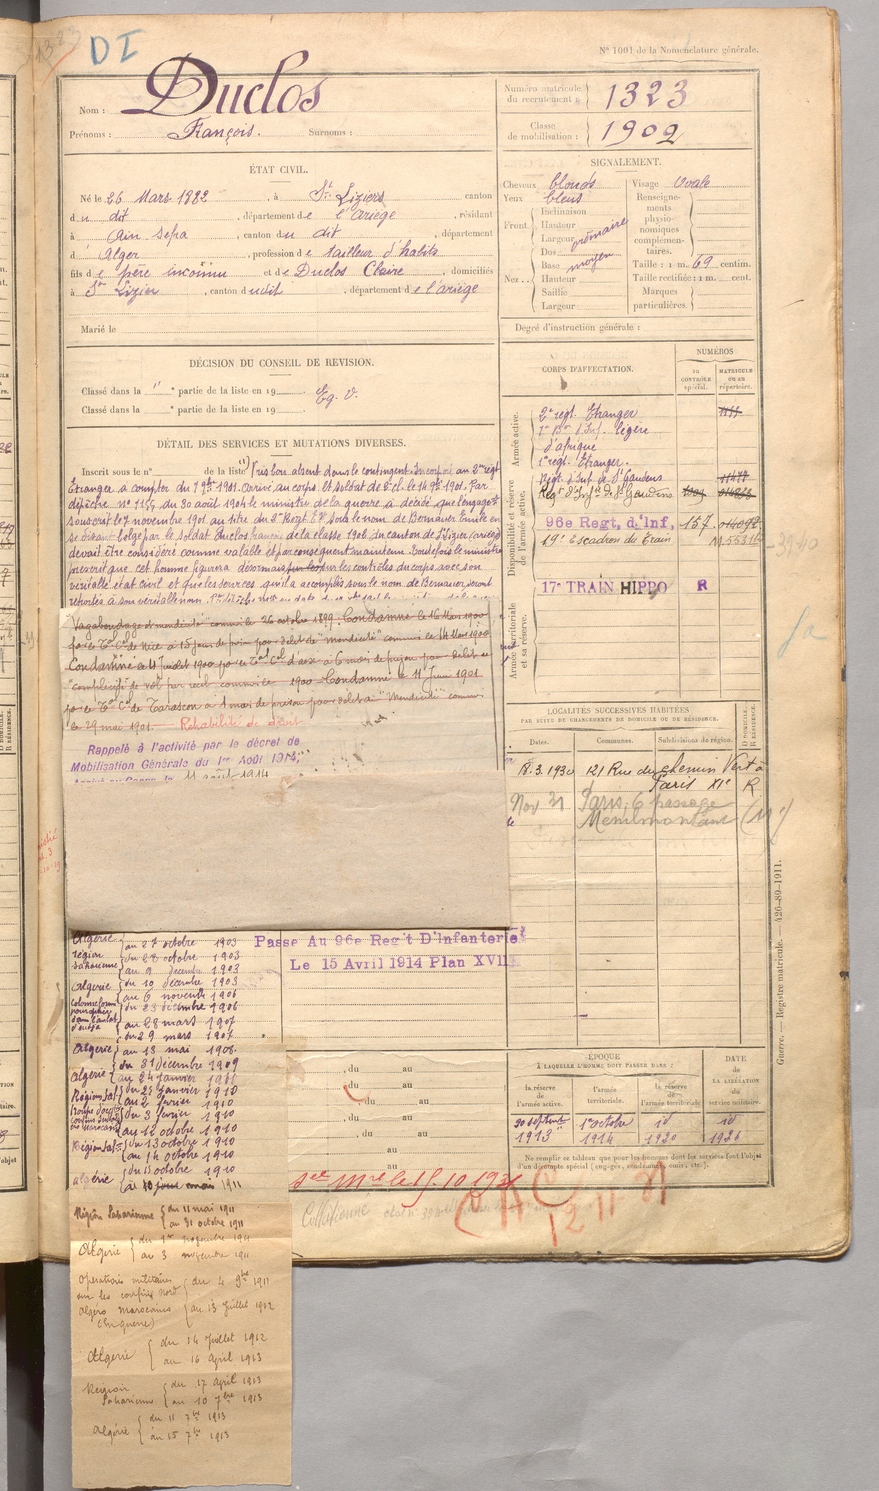 DI
N° 1001 de la Nomenclature générale.
Nom : Duclos
Prénoms : François. Surnoms :
Numéro matricule du recrutement : 1323
Classe de mobilisation : 1902
ÉTAT CIVIL.
Né le 26 Mars 1882, à St Liziers canton
du dit, département de l'ariège, résidant
à Ain Sefra, canton du dit, département
d'Alger, profession de tailleur d'habits
fils de père inconnu et de Duclos Claire, domiciliés
à St Lizier, canton dudit, département de l'ariège
Marié le
SIGNALEMENT.
Cheveux blonds
Yeux bleus
Front
Inclinaison
Hauteur
Largeur
ordinaire
Nez
Dos
Base
moyen
Hauteur
Saillie
Largeur
Visage Ovale
Renseignements physionomiques complémentaires.
Taille : 1 m. 69 centim.
Taille rectifiée : 1 m. cent.
Marques particulières.
Degré d'instruction générale :
DÉCISION DU CONSEIL DE REVISION.
Classé dans la " e partie de la liste en 19 Eg. V.
Classé dans la e partie de la liste en 19
CORPS D'AFFECTATION.
NUMÉROS
au CONTRÔLE spécial.
MATRICULE ou au répertoire.
Armée active.
2e regt. Etranger
1er Bon d'Inf. légère
d'afrique
1er regt. Etranger.
Disponibilité et réserve de l'armée active.
Regt d'Inf de St Gaudens
Regt d'Infie de St Gaudens
96e Regt, d'Inf, 157
19e Escadron du Train
3240
Armée territoriale et sa réserve.
17e TRAIN HIPPO R
DÉTAIL DES SERVICES ET MUTATIONS DIVERSES.
Inscrit sous le n° de la liste Pris bon absent dans le contingent. Incorporé au 2e régt
Etranger à compter du 7 9bre 1901. arrivé au corps et soldat de 2e cl. le 14 9bre 1901. Par
dépêche n° 1155 du 30 août 1904 le ministre de la guerre a décidé que l'engagt
souscrit le 7 novembre 1901 au titre du 2e Regt Er sous le nom de Bernauer Emile en
se disant belge par le soldat Duclos français de la classe 1902 du canton de St Lizier (ariège)
devait être considéré comme valable et par conséquent maintenu. Toutefois le ministre
prescrit que cet homme figurera désormais sur les contrôles du corps avec son
véritable état civil et que les services qu'il a accomplis sous le nom de Bernauer seront
reportés à son véritable nom.
Vagabondage et mendicité commis le 26 octobre 1899. Condamné le 16 Mai 1900
par le Tal Cel de Nice à 15 jours de prison pour délit de "mendicité" commis le 14 Mai 1900
Condamné le 4 Juillet 1900 par le Tal Cel d'aix à 6 mois de prison pour délit de
"complicité de vol par recel" commis le 1900 Condamné le 11 Juin 1901
par le Tal Cel de Tarascon à 1 mois de prison pour délit de "Mendicité" commis
le 29 mai 1901. Réhabilité de droit
Rappelé à l'activité par le décret de
Mobilisation Générale du 1er Août 1914,
11 août 1914
LOCALITÉS SUCCESSIVES HABITÉES
PAR SUITE DE CHANGEMENTS DE DOMICILE OU DE RÉSIDENCE.
Dates. Communes. Subdivisions de région. D. DOMICILE. R. RÉSIDENCE.
18.3.1930 121 Rue du chemin Vert à
Paris XIe R
Nov 31 Paris 6 passage
Menilmontant (11e)
Guerre. — Registre matricule. — 426-89-1911.
Passe Au 96e Reg't D'Infanterie
Le 15 Avril 1914 Plan XVII
Algérie
au 27 octobre 1903
région saharienne
du 28 octobre 1903
au 9 décembre 1903
Algérie
du 10 décembre 1903
au 6 novembre 1906
du 23 décembre 1906
au 28 mars 1907
Algérie
du 29 mars 1907
au 13 mai 1908
du 31 décembre 1909
Algérie
au 24 janvier 1910
Région Sah
du 25 janvier 1910
au 2 février 1910
du 3 février 1910
au 12 octobre 1910
Région Sah
du 13 octobre 1910
au 14 octobre 1910
algérie
du 15 octobre 1910
au 10 mai 1911
, du au
, du au
, du au
, du au
, du au
au
au
ÉPOQUE
À LAQUELLE L'HOMME DOIT PASSER DANS :
la réserve de l'armée active.
l'armée territoriale.
la réserve de l'armée territoriale
DATE de LA LIBÉRATION du service militaire.
30 septembre 1913
1er octobre 1914
id 1920
id 1926
Ne remplir ce tableau que pour les hommes dont les services font l'objet
d'un décompte spécial (engagés, condamnés, omis, etc.).
le 15.10.1931
CAC
12 11 31
Région Saharienne
du 11 mai 1911
au 31 octobre 1911
Algérie
du 1er novembre 1911
au 3 novembre 1911
Opérations militaires
sur les confins Nord
algéro marocains
(En guerre)
du 4 9bre 1911
au 13 Juillet 1912
Algérie
du 14 Juillet 1912
au 16 April 1913
Région
Saharienne
du 17 April 1913
au 10 7bre 1913
Algérie
du 11 7bre 1913
au 15 7bre 1913